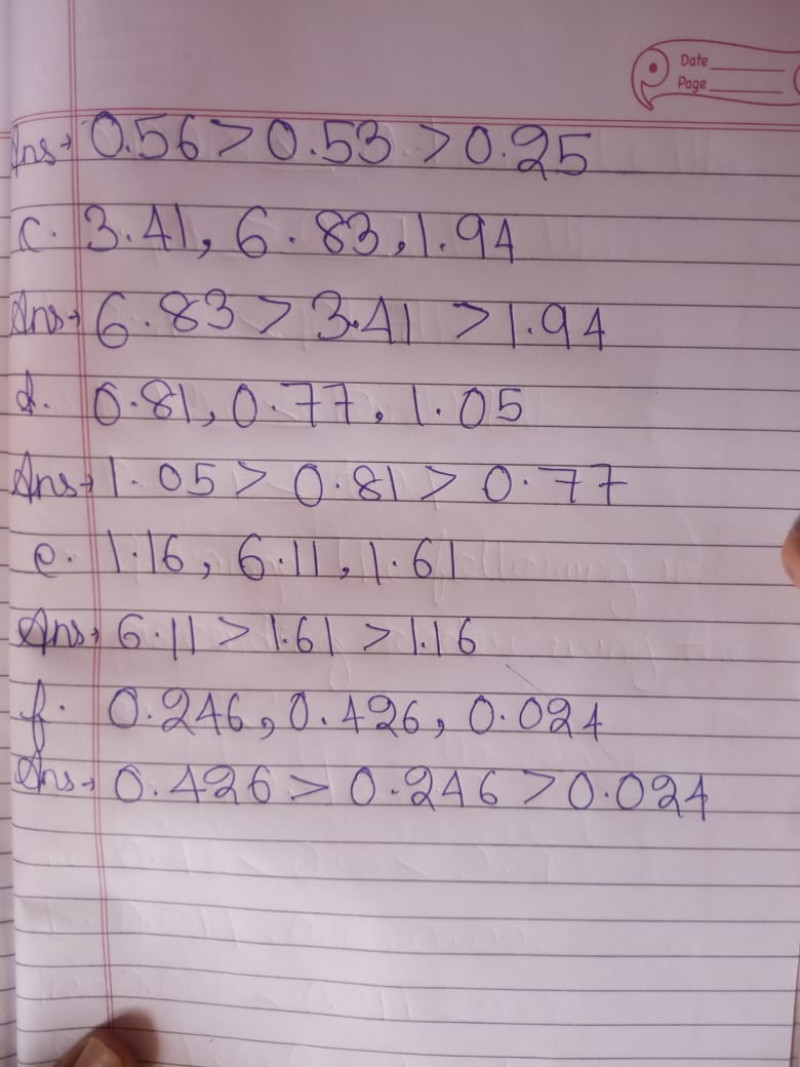 Date
Page
Ans→ 0.56 > 0.53 > 0.25
c. 3.41, 6.83, 1.94
Ans→ 6.83 > 3.41 > 1.94
d. 0.81, 0.77, 1.05
Ans→ 1.05 > 0.81 > 0.77
e. 1.16, 6.11, 1.61
Ans→ 6.11 > 1.61 > 1.16
f. 0.246, 0.426, 0.024
Ans→ 0.426 > 0.246 > 0.024